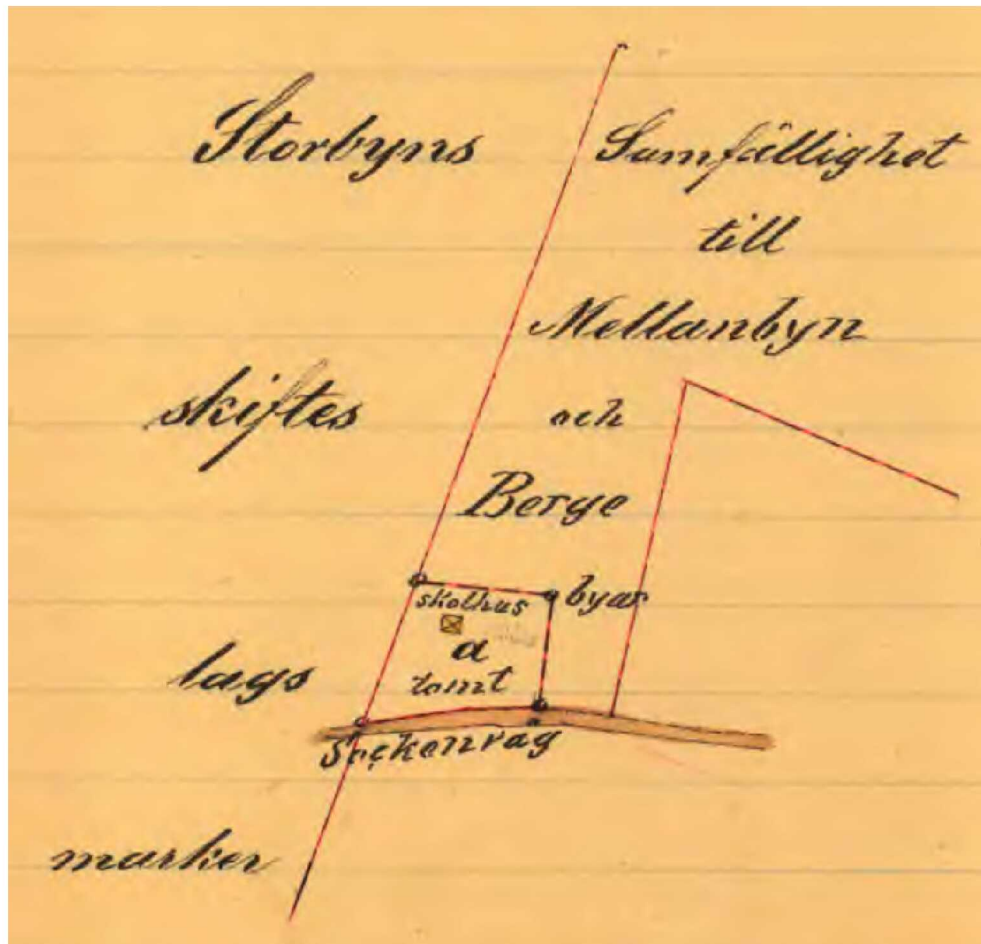 Storbyns
skiftes
lags
marker
Samfällighet
till
Mellanbyn
och
Berge
byar
skolhus
a
tomt
Sockenväg